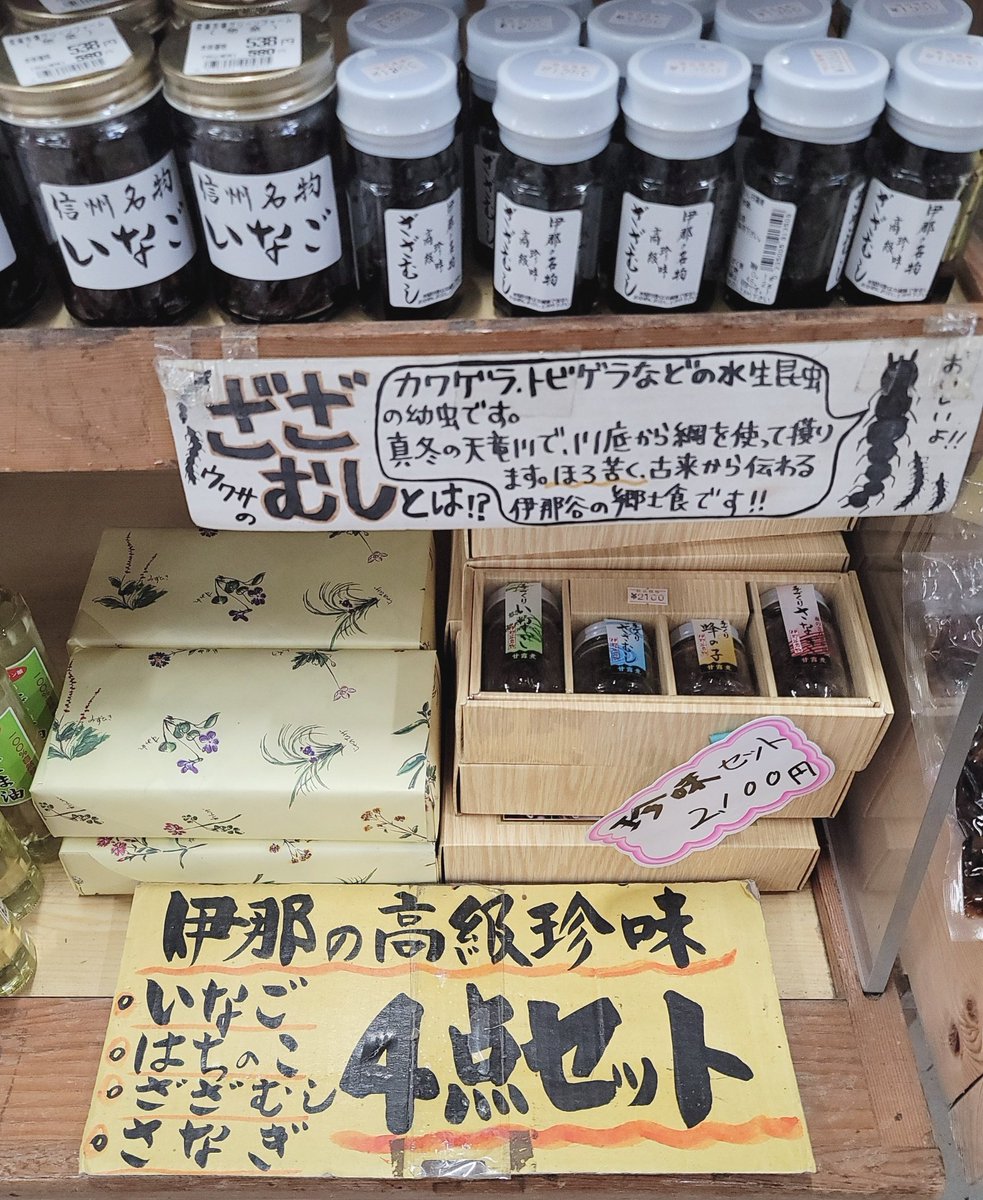 538
538
信州名物
いなご
信州名物
いなご
伊那・名物
高級珍味
ざざむし
伊那・名物
高級珍味
ざざむし
伊那・名物
高級珍味
ざざむし
伊那・名物
高級珍味
ざざむし
ウワサの
ざざむしとは!?
カワゲラ、トビゲラなどの水生昆虫
の幼虫です。
真冬の天竜川で、川底から網を使って獲り
ます。ほろ苦く、古来から伝わる
伊那谷の郷土食です!!
おいしいよ!!
¥2100
手づくり
いなご
甘露煮
ざざむし
甘露煮
手づくり
蜂の子
甘露煮
手づくり
さなぎ
甘露煮
珍味セット
2100円
伊那の高級珍味
いなご
はちのこ
ざざむし
さなぎ
4点セット